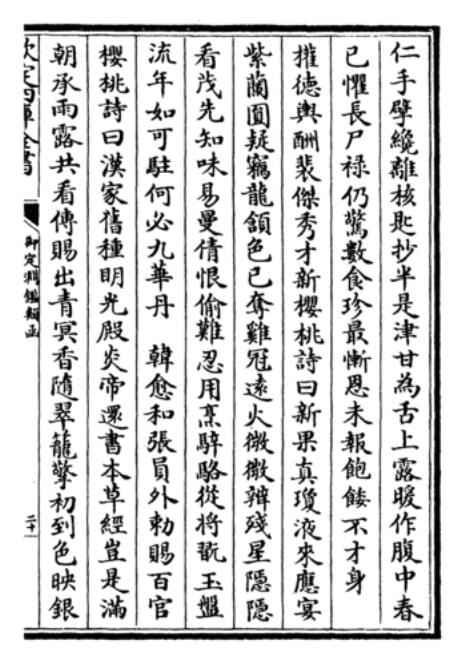 仁手擘纔離核匙抄半是津甘為舌上露暖作腹中春
已懼長尸禄仍驚數食珍最慚恩未報飽餧不才身
權德輿酬裴傑秀才新櫻桃詩曰新果真瓊液來應宴
紫蘭圓疑竊龍頷色已奪雞冠遠火微微辨殘星隱隱
看茂先知味易曼倩恨偷難忍用烹騂駱從將翫玉盤
流年如可駐何必九華丹　韓愈和張員外勅賜百官
櫻桃詩曰漢家舊種明光殿炎帝還書本草經豈是滿
朝承雨露共看傳賜出青冥香隨翠籠擎初到色映銀
御定淵鑑類函
二十